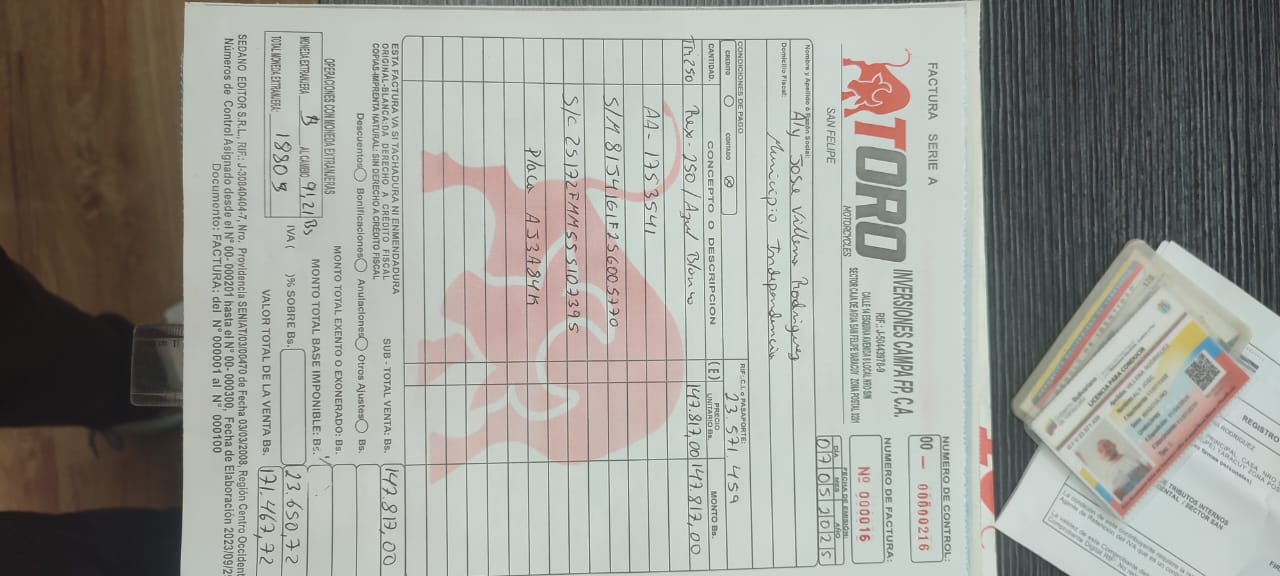 FACTURA SERIE A
TORO
MOTORCYCLES
SAN FELIPE
INVERSIONES CAMPA FP, C.A.
RIF.: J-50443978-9
CALLE 14 ESQUINA AVENIDA 8 LOCAL NRO S/N
SECTOR CAJA DE AGUA SAN FELIPE YARACUY ZONA POSTAL 3201
NUMERO DE CONTROL:
00 - 00000216
NUMERO DE FACTURA:
Nº 000016
FECHA DE EMISIÓN:
DIA MES AÑO
07 05 2025
Nombre y Apellido ó Razón Social:
Aly Jose Villena Rodriguez
Domicilio Fiscal:
Municipio Independencia
CONDICIONES DE PAGO
CREDITO
CONTADO
RIF.:C.I. o PASAPORTE:
23 571 459
CANTIDAD.
CONCEPTO O DESCRIPCION
(E)
PRECIO UNITARIO Bs.
MONTO Bs.
Rex-250/Azul Blanco
147.817,00 147.817,00
AA-1753541
Placa AJ3A84K
ESTA FACTURA VA SI TACHADURA NI ENMENDADURA
ORIGINAL-BLANCA:DA DERECHO A CRÉDITO FISCAL
COPIAS-IMPRENTA NATURAL: SIN DERECHO A CRÉDITO FISCAL
SUB - TOTAL VENTA: Bs.
147.817,00
Descuentos Bonificaciones Anulaciones Otros Ajustes Bs.
MONTO TOTAL EXENTO O EXONERADO: Bs.
OPERACIONES CON MONEDA EXTRANJERAS
MONTO TOTAL BASE IMPONIBLE Bs.
MONEDA EXTRANJERA
AL CAMBIO 91,21 Bs
IVA ( )% SOBRE Bs.
23.650,72
TOTAL MONEDA EXTRANJERA:
VALOR TOTAL DE LA VENTA Bs.
171.467,72
SEDANO EDITOR S.R.L., RIF.: J-30840404-7, Nro. Providencia SENIAT/03/00470 de Fecha 03/03/2008, Región Centro Occident
Números de Control Asignado desde el Nº 00- 000201 hasta el Nº 00- 000300, Fecha de Elaboración 2023/09/2
Documento: FACTURA: del Nº 000001 al Nº 000100
LICENCIA PARA CONDUCIR
REGISTRO
TRIBUTOS INTERNOS